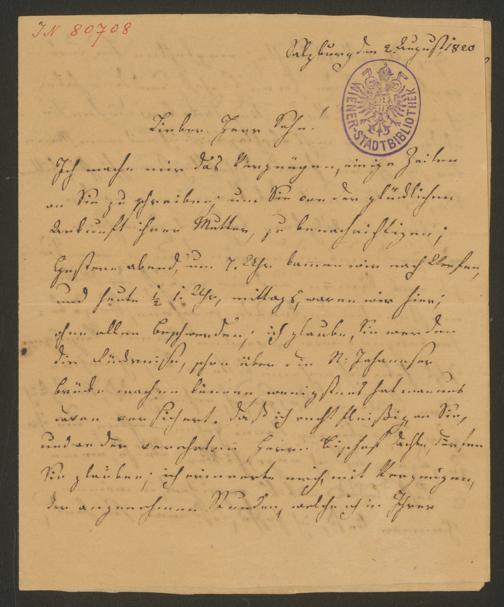 IN 80708
Salzburg den 2. August 1820
WIENER-STADTBIBLIOTHEK
Lieber Herr Sohn!
Ich mache mir das Vergnügen, einige Zeilen
an Sie zu schreiben; um Sie von der glücklichen
Ankunft ihrer Mutter, zu benachrichtigen;
Gestern abend, um 7. Uhr kammen wir nach
und heute ½ 1. Uhr, mittags, waren wir hier;
ohne allen beschwerden; ich glaube, Sie werden
die schon über die St: Johannser
brücke machen können wenigstens hat man uns
davon versichert. Daß ich recht fleißig an Sie,
und an den verehrten Herrn Bischof dachte, dürfen
Sie glauben; ich erinnerte mich mit Vergnügen,
der angenehmen Stunden, welche ich in Ihrer